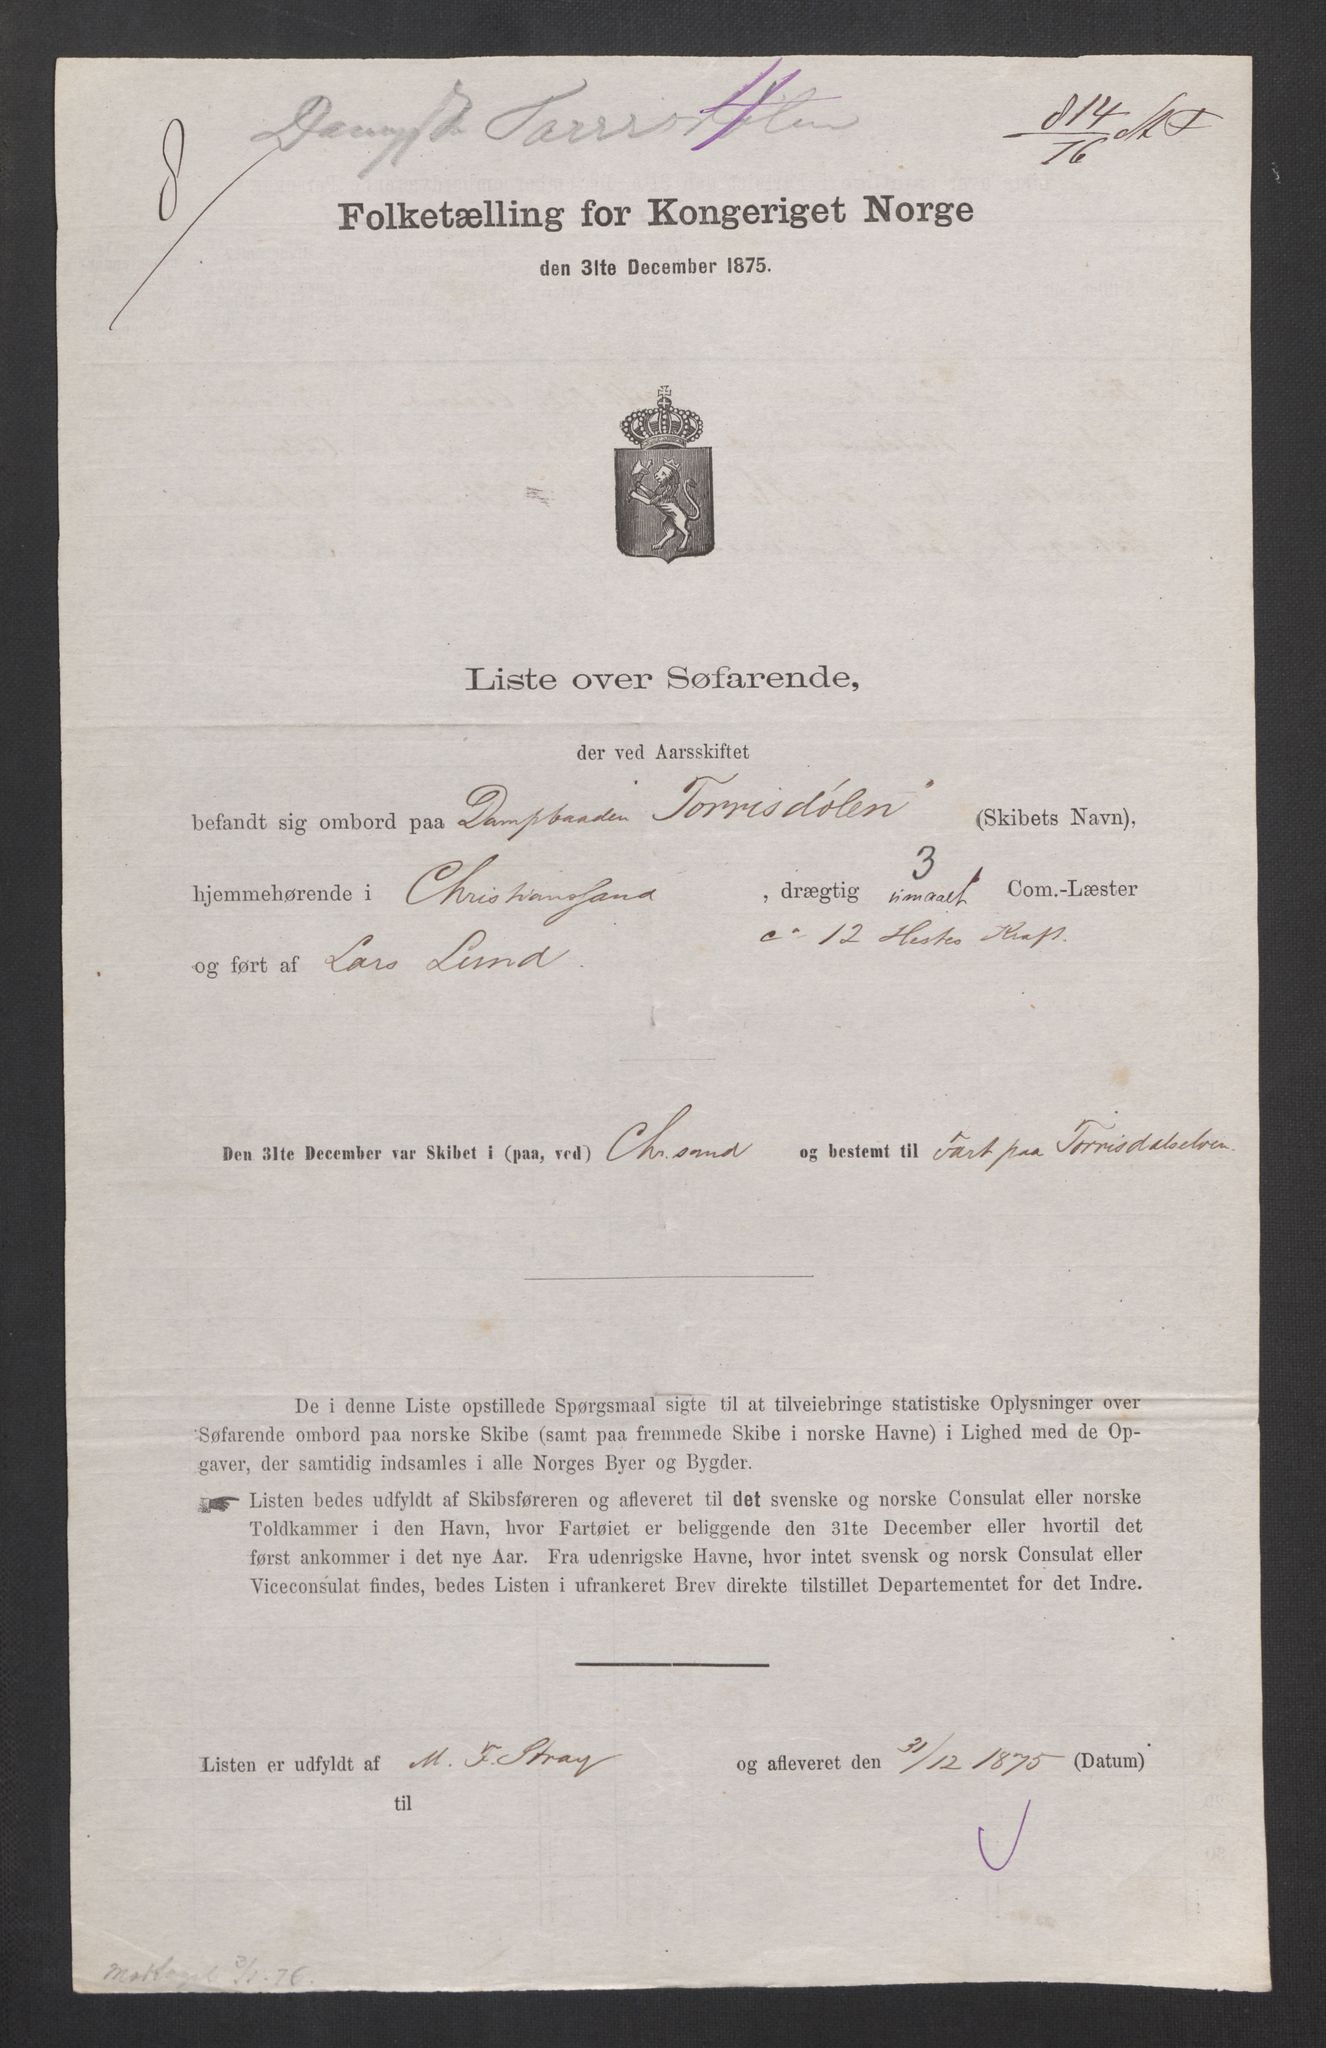 8
4
814/76
Folketælling for Kongeriget Norge
den 31te December 1875.
Liste over Søfarende,
der ved Aarsskiftet
befandt sig ombord paa Dampbaaden "Torrisdölen" (Skibets Navn),
hjemmehørende i Christianssand, drægtig 3 umaalt Com.-Læster
ca 12 Hestes Kraft.
og ført af Lars Lund.
Den 31te December var Skibet i (paa, ved) Chr.sand og bestemt til Fart paa Torrisdalselven.
De i denne Liste opstillede Spørgsmaal sigte til at tilveiebringe statistiske Oplysninger over
Søfarende ombord paa norske Skibe (samt paa fremmede Skibe i norske Havne) i Lighed med de Op-
gaver, der samtidig indsamles i alle Norges Byer og Bygder.
Listen bedes udfyldt af Skibsføreren og afleveret til det svenske og norske Consulat eller norske
Toldkammer i den Havn, hvor Fartøiet er beliggende den 31te December eller hvortil det
først ankommer i det nye Aar. Fra udenrigske Havne, hvor intet svensk og norsk Consulat eller
Viceconsulat findes, bedes Listen i ufrankeret Brev direkte tilstillet Departementet for det Indre.
Listen er udfyldt af M. F. Stray og afleveret den 31/12 1875 (Datum)
til